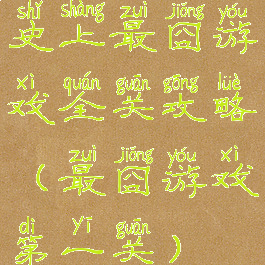 shǐ shàng zuì jiǒng yóu
史上最囧游
xì quán guān gōng lüè
戏全关攻略
zuì jiǒng yóu xì
（最囧游戏
dì yī guān
第一关）